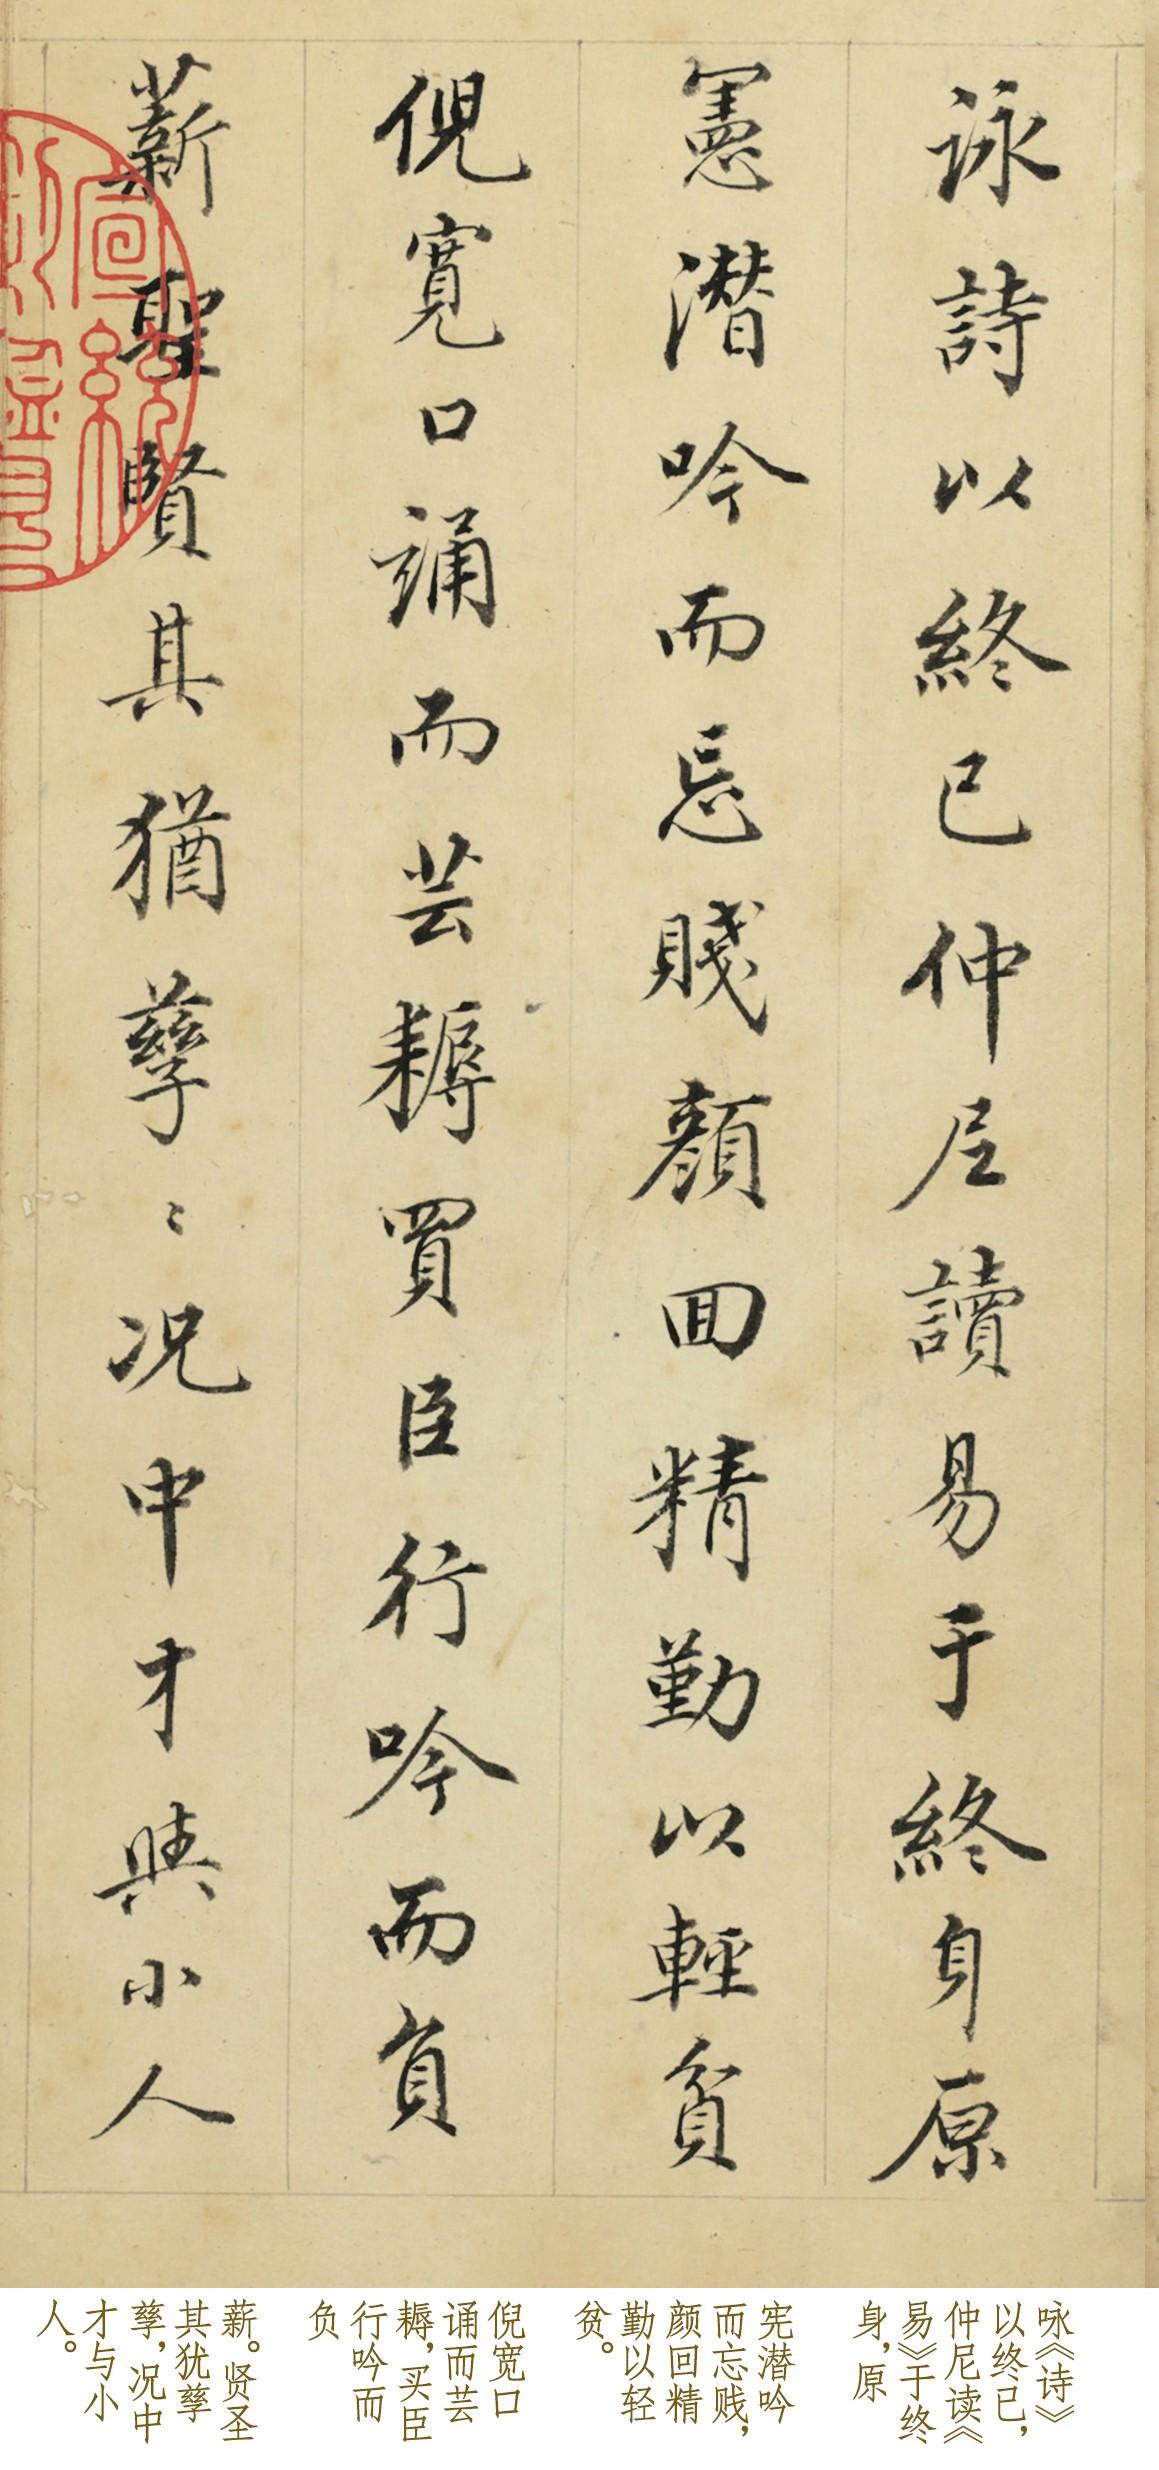 咏詩以終已仲尼讀易于終身原
憲潛吟而忘賤顏回精勤以輕貧
倪寬口誦而芸耨買臣行吟而負
薪聖賢其猶孳〻况中才與小人
咏《诗》
以终已，
仲尼读《
易》于终
身，原
宪潜吟
而忘贱，
颜回精
勤以轻
贫。
倪宽口
诵而芸
耨，买臣
行吟而
负
薪。贤圣
其犹孳
孳，况中
才与小
人。